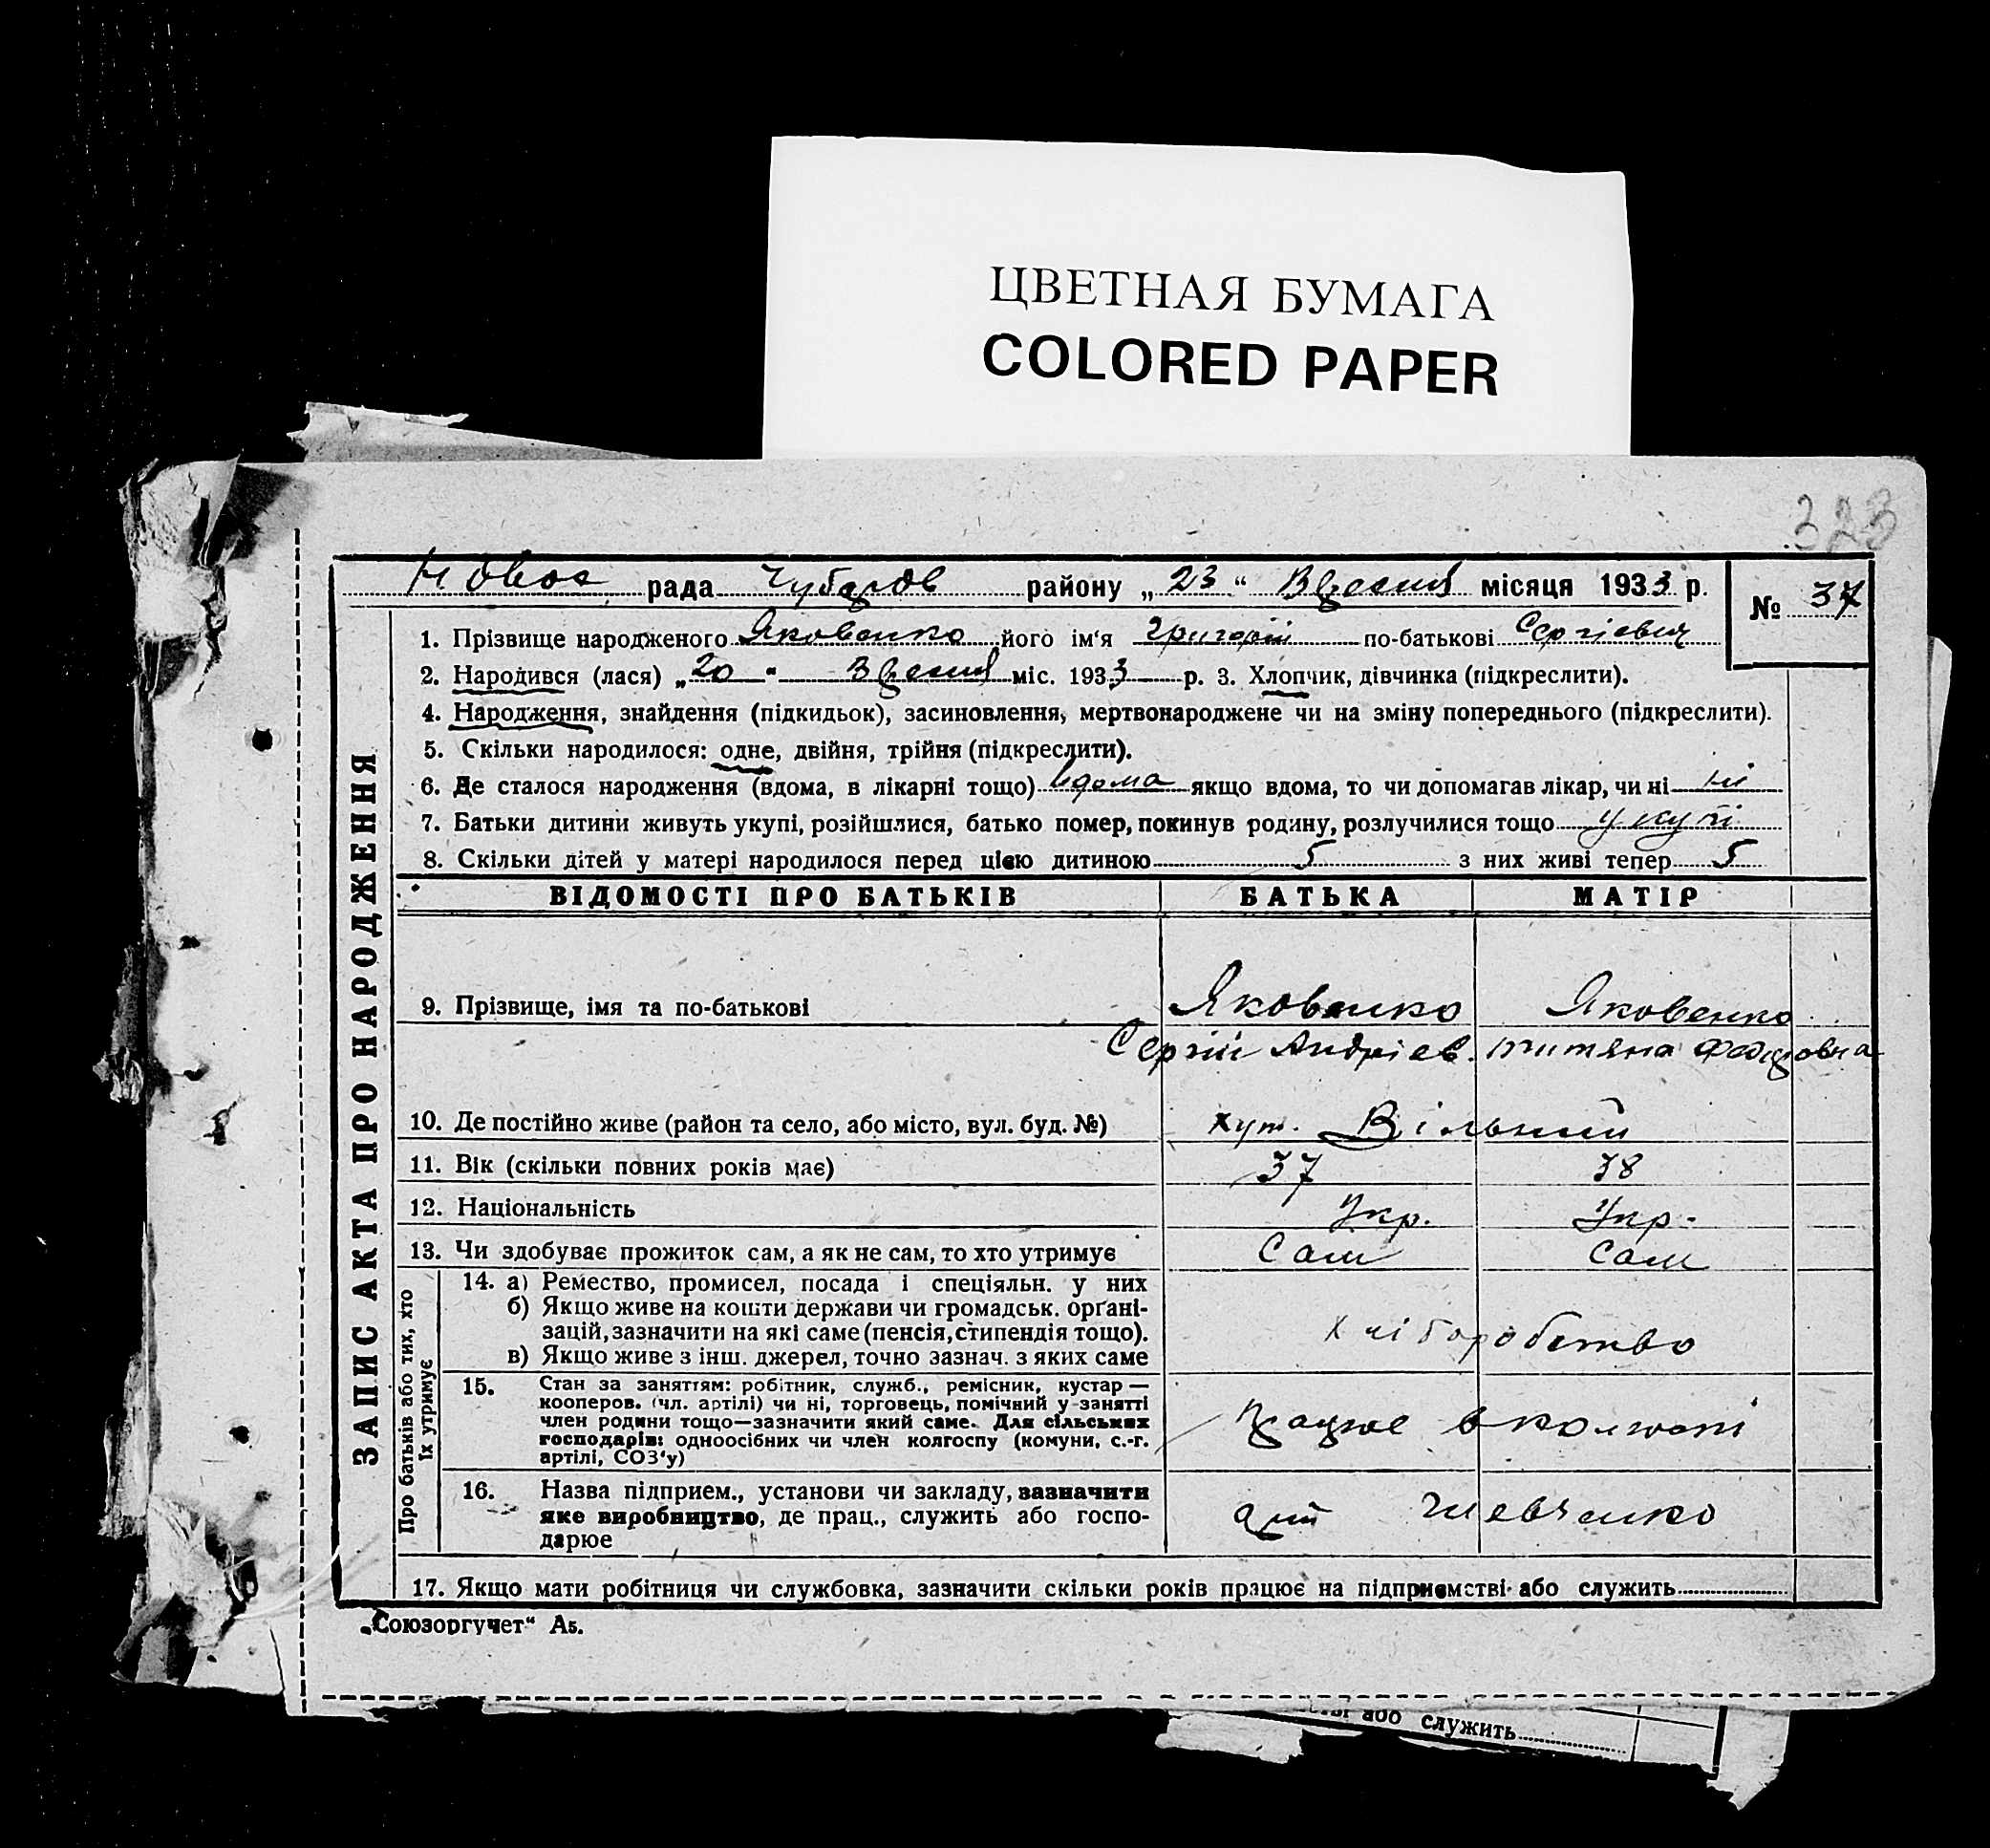 ЦВЕТНАЯ БУМАГА
COLORED PAPER
323
рада Чубаров району „23“ Вресния місяця 1933 р.
№ 37
1. Прізвище народженого Яковенко його ім‘я Григорій по-батькові Сергіевич
2. Народився (лася) „20“ Вресния міс. 1933 р. 3. Хлопчик, дівчинка (підкреслити).
4. Народження, знайдення (підкидьок), засиновлення, мертвонароджене чи на зміну попереднього (підкреслити).
5. Скільки народилося: одне, двійня, трійня (підкреслити).
6. Де сталося народження (вдома, в лікарні тощо) вдома якщо вдома, то чи допомагав лікар, чи ні ні
7. Батьки дитини живуть укупі, розійшлися, батько помер, покинув родину, розлучилися тощо укупі
8. Скільки дітей у матері народилося перед цією дитиною 5 з них живі тепер 5
ВІДОМОСТІ ПРО БАТЬКІВ БАТЬКА МАТІР
9. Прізвище, імя та по-батькові Яковенко Яковенко
Сергій Андріев. Титяна Федоровна
10. Де постійно живе (район та село, або місто, вул. буд. №) хут. Вільний
11. Вік (скільки повних років має) 37 38
12. Національність Укр. Укр.
13. Чи здобуває прожиток сам, а як не сам, то хто утримує Сам Сам
14. а) Ремество, промисел, посада і спеціяльн. у них
б) Якщо живе на кошти держави чи громадськ. орґані-
зацій, зазначити на які саме (пенсія, стипендія тощо).
в) Якщо живе з інш. джерел, точно зазнач. з яких саме
Хліборобство
15. Стан за заняттям: робітник, служб., ремісник, кустар —
кооперов. (чл. артілі) чи ні, торговець, помічний у занятті
член родини тощо—зазначити який саме. Для сільських
господарів: одноосібних чи член колгоспу (комуни, с.-г.
артілі, СОЗ‘у)
працює в колгоспі
16. Назва підприєм., установи чи закладу, зазначити
яке виробництво, де прац., служить або госпо-
дарює
арт Шевченко
17. Якщо мати робітниця чи службовка, зазначити скільки років працює на підприємстві або служить
ЗАПИС АКТА ПРО НАРОДЖЕННЯ
Про батьків або тих, хто
їх утримує
„Союзоргучет“ А5.
або служить